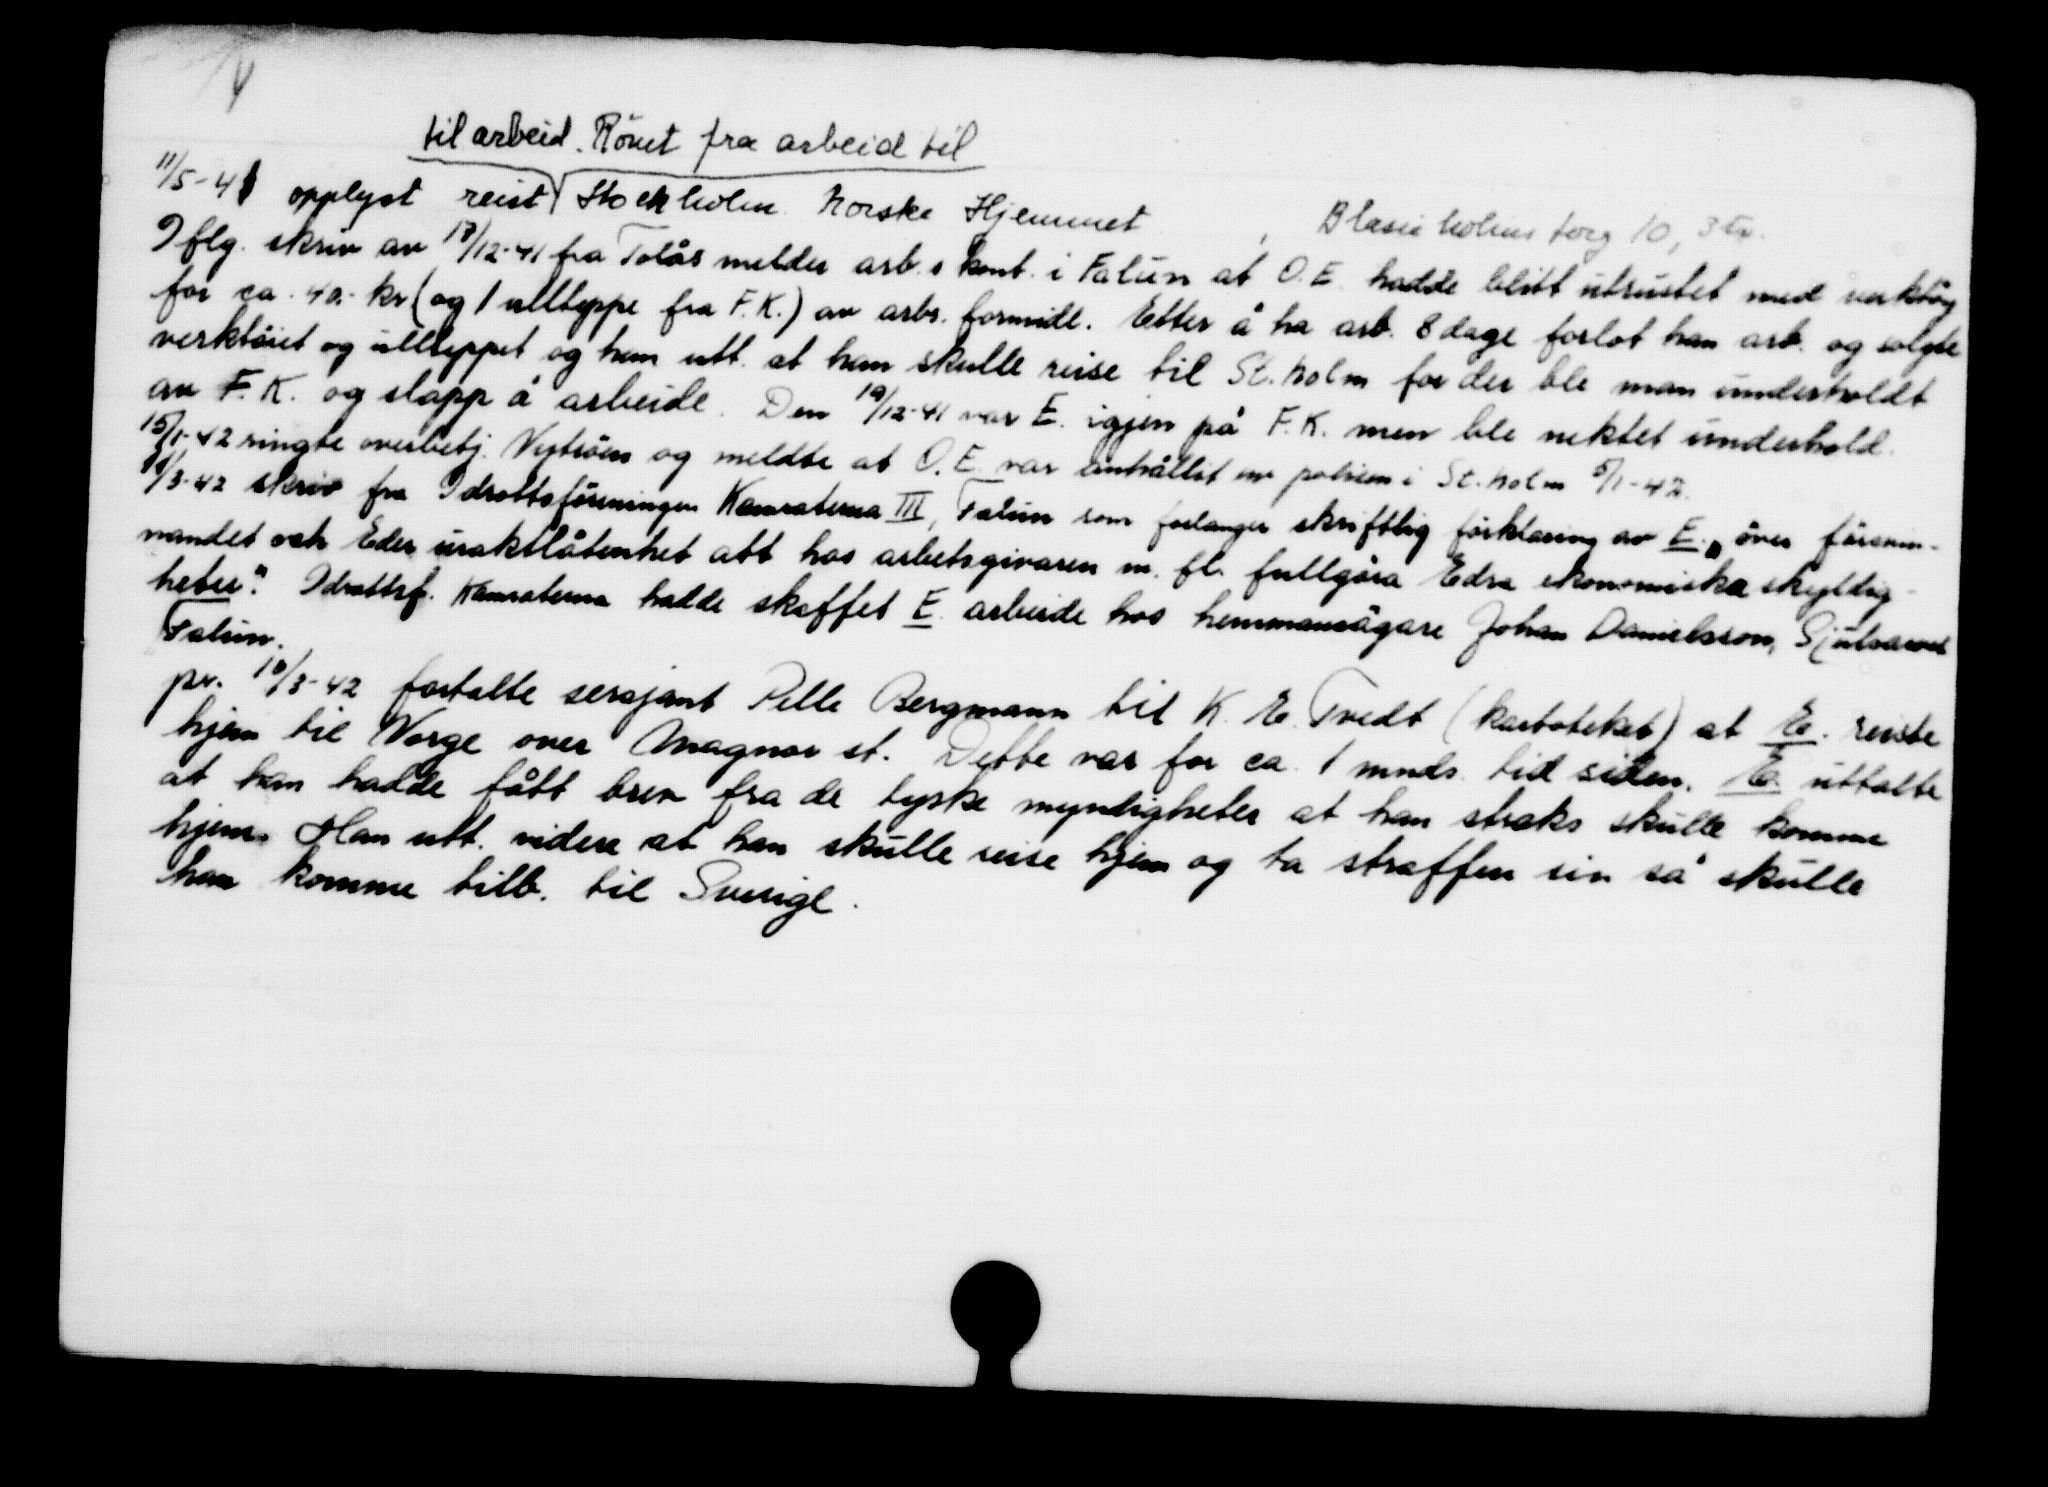 til arbeid. Römt fra arbeid til
11/5-41 opplyst reist Stockholm. Norske Hjemmet, Blasieholms torg 10, 3 tr.
Iflg. skriv av 17/12-41 fra Tolås melder arb.s kont. i Falun at O.E. hadde blitt utrustet med verktöy
for ca. 40.- kr (og 1 ullteppe fra F.K.) av arbs. formidl. Etter å ha arb. 8 dage forlot han arb. og solgte
verktöiet og ullteppet og han utt. at han skulle reise til St.holm for der ble man underholdt
av F.K. og slapp å arbeide. Den 19/12-41 var E. igjen på F.K. men ble nektet underhold.
15/1-42 ringte overbetj. Nytröen og meldte at O.E. var anhållit av polisen i St.holm 5/1-42.
/3-42 skriv fra Idrottsföreningen Kamraterna III, Falun som forlanger skriftlig förklaring av E. „över försum-
mandet och Eder uraktlåtenhet att hos arbetsgivaren m. fl. fullgöra Edra ekonomiska skyldig-
heter". Idrottsf. Kamraterna hadde skaffet E. arbeide hos hemmansägare Johan Danielsson,
Falun.
pr. 10/3-42 fortalte sersjant Pelle Bergmann til K. E. Tvedt (kartoteket) at E. reiste
hjem til Norge over Magnor st. Dette var for ca. 1 mnds. tid siden. E. uttalte
at han hadde fått brev fra de tyske myndigheter at han straks skulle komme
hjem. Han utt. videre at han skulle reise hjem og ta straffen sin så skulle
han komme tilb. til Sverige.